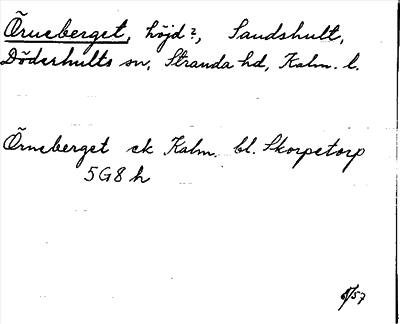 Örneberget, höjd?, Sandshult,
Döderhults sn, Stranda hd, Kalm. l.
Örneberget ek Kalm. bl. Skorpetorp
5G8h